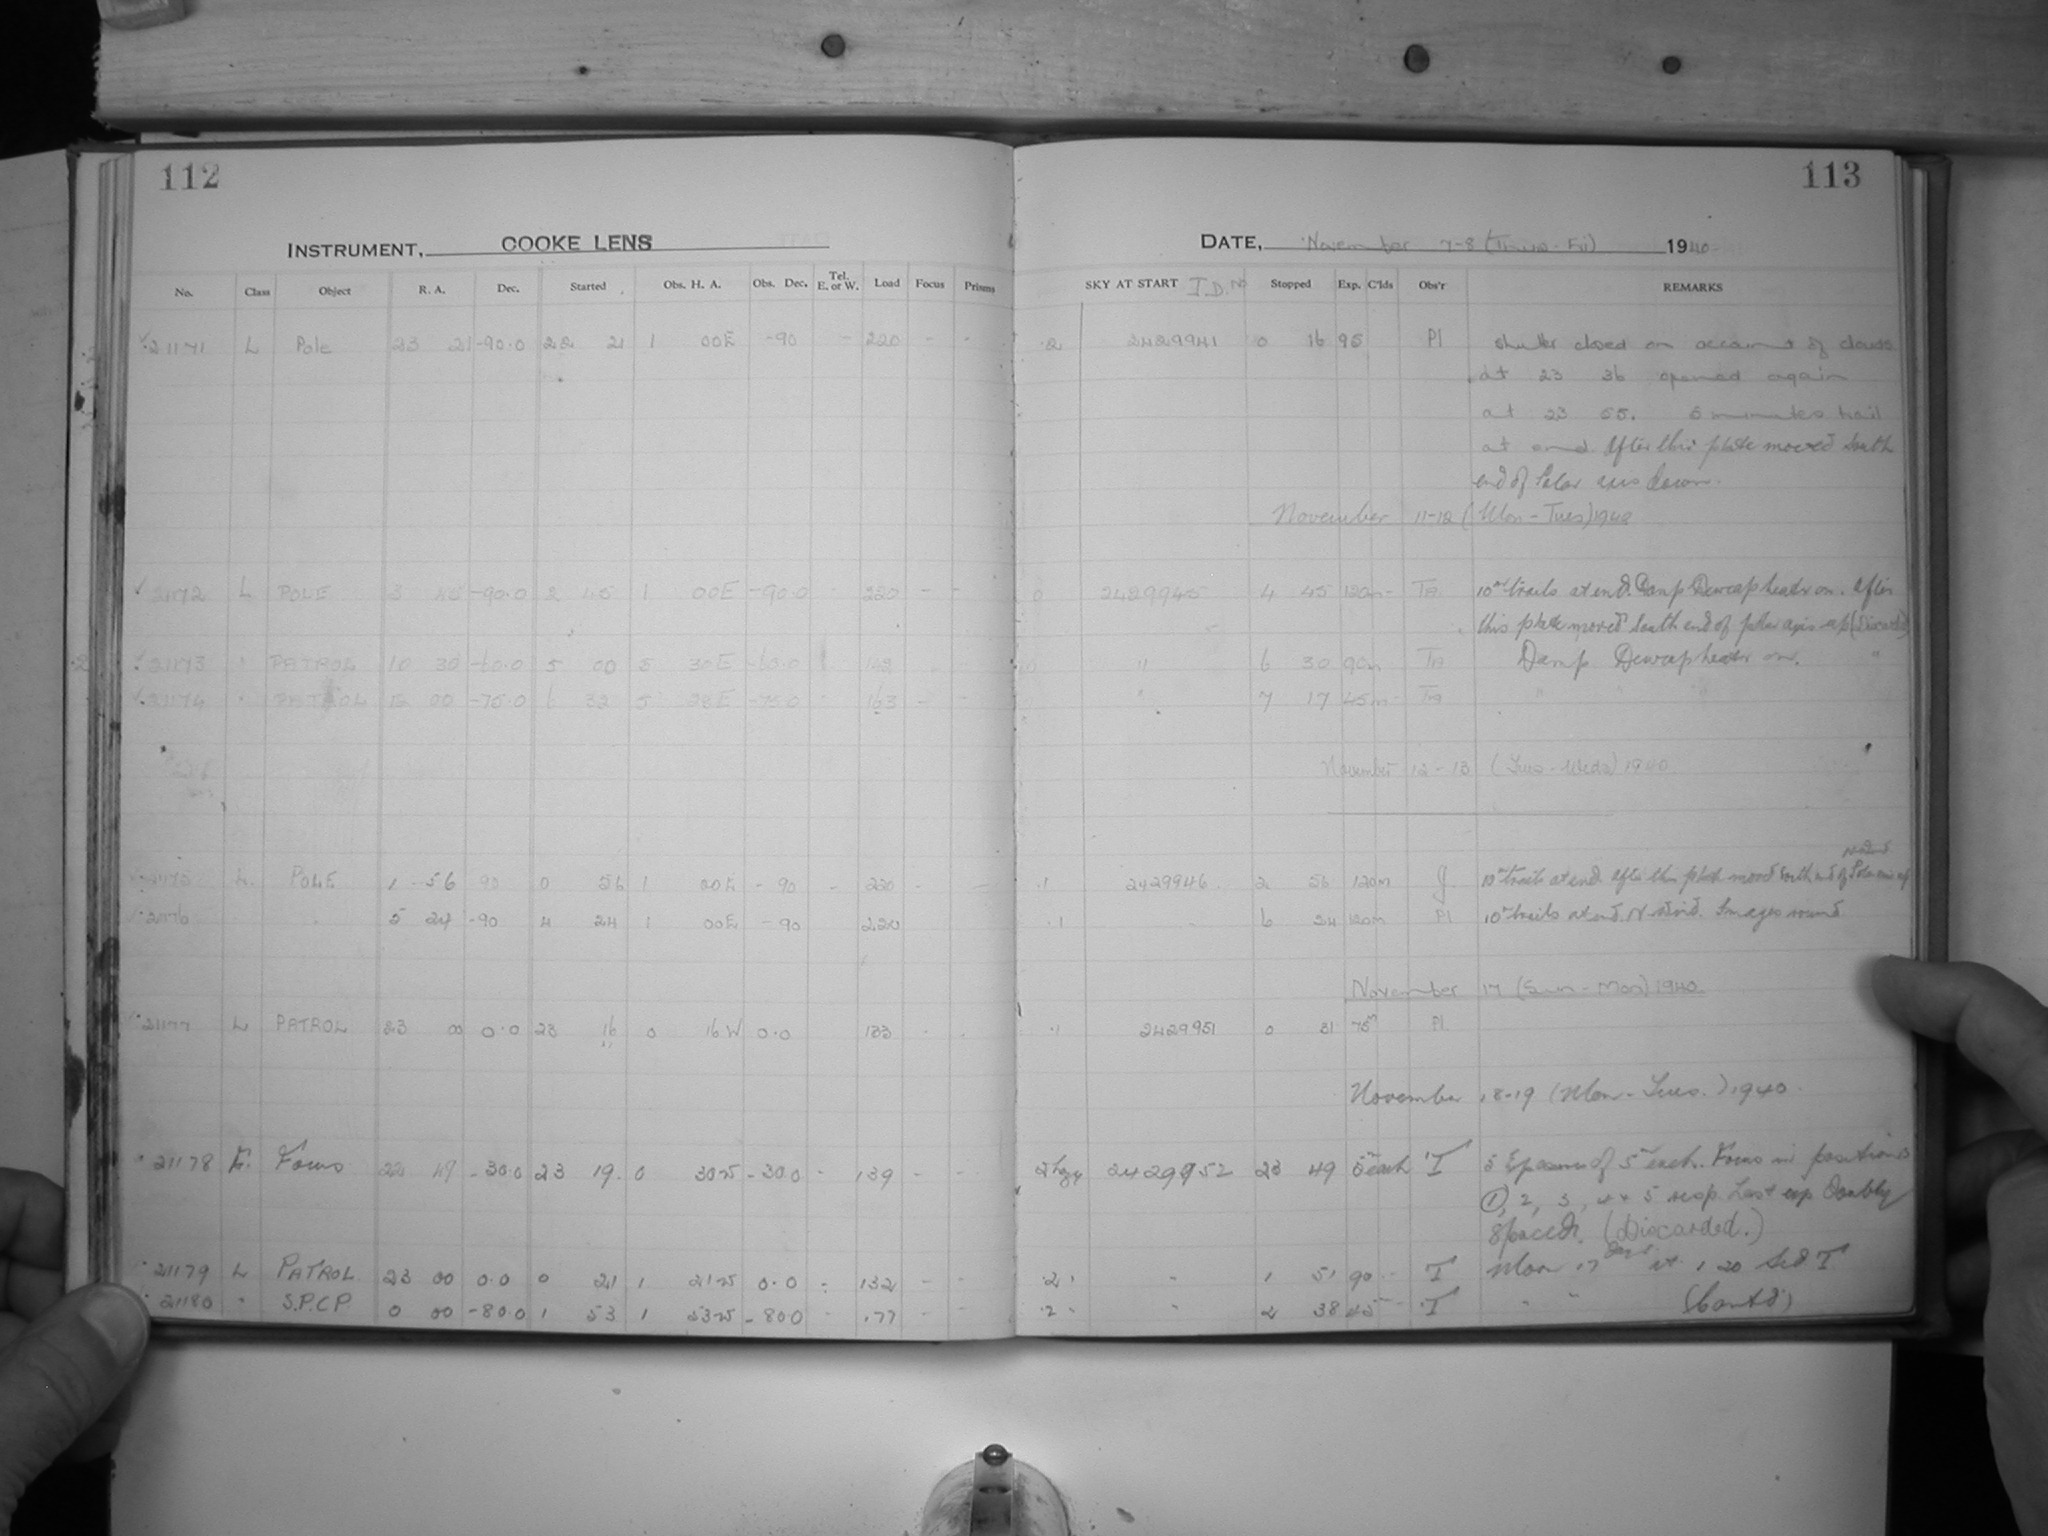 112
113
INSTRUMENT, COOKE LENS
DATE, November 7-8 (Thurs-Fri) 1940
No. Class Object R. A. Dec. Started Obs. H. A. Obs. Dec. Tel. E. or W. Load Focus Prisms SKY AT START J.D. Stopped Exp. C'lds Obs'r REMARKS
21171 L Pole 23 21 -90.0 22 21 1 00E -90 - 220 - - .2 2429941 0 16 95 Pl shutter closed on account of clouds
at 23 36 opened again
at 23 55. 5 minutes trail
at end. After this plate moved South
end of Polar axis down.
November 11-12 (Mon-Tues)
21172 L POLE 3 45 -90.0 2 45 1 00E -90.0 220 - - 0 2429945 4 45 120m - TA 10m trails at end. Damp Dewcap heater on. After
this plate moved South end of polar axis up (Discarded)
21173 " PATROL 10 30 -60.0 5 00 5 30E -60.0 " 6 30 90m TA Damp Dewcap heater on. "
21174 " PATROL 12 00 -75.0 6 32 5 28E -75.0 - 163 - - " 7 17 45m - TA " " "
November 12-13 (Tues-Weds) 1940
21175 L. POLE 1 56 90 0 56 1 00E -90 - 220 - - .1 2429946 2 56 120m J. 10m trails at end After this plate moved South end of Polar axis up
21176 " 5 24 -90 4 24 1 00E -90 220 .1 " 6 24 120m Pl 10m trails at end. Images round
November 17 (Sun-Mon) 1940
21177 L PATROL 23 00 0.0 23 16 0 16W 0.0 133 - - .1 2429951 0 31 75m Pl
November 18-19 (Mon-Tues.) 1940.
21178 F. Focus 22 49 -30.0 23 19. 0 30W -30.0 - 139 - - 2 hazy 2429952 23 49 5m each T 5 Exposures of 5m each. Focus in positions
1, 2, 3, 4 + 5 resp. Last exp Doubly
Spaced. (Discarded.)
21179 L PATROL 23 00 0.0 0 21 1 21W 0.0 - 132 - - .2 " 1 51 90 - T Moon 17 Days at 1 20 Sid T
21180 " S.P.C.P 0 00 -80.0 1 53 1 53W -80.0 - 177 - - .2 " 2 38 45 - T " " (Contd)